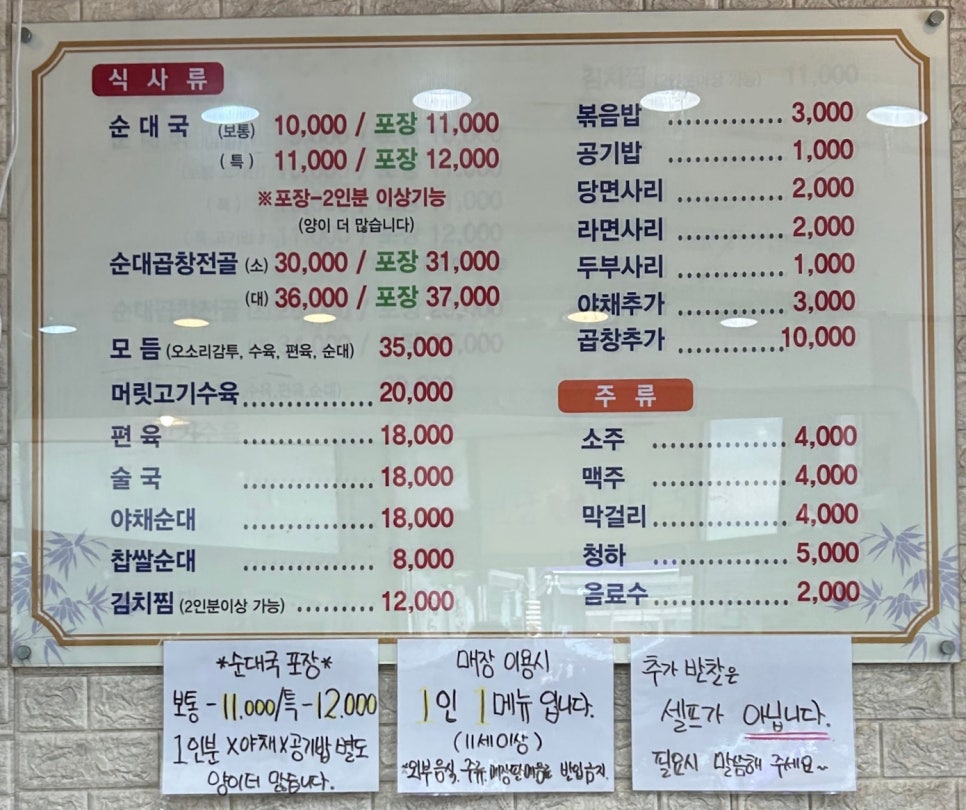 식사류
순대국 (보통) 10,000 / 포장 11,000
(특) 11,000 / 포장 12,000
※포장-2인분 이상기능
(양이 더 많습니다)
순대곱창전골 (소) 30,000 / 포장 31,000
(대) 36,000 / 포장 37,000
모듬 (오소리감투, 수육, 편육, 순대) 35,000
머릿고기수육 20,000
편육 18,000
술국 18,000
야채순대 18,000
찹쌀순대 8,000
김치찜 (2인분이상 가능) 12,000
볶음밥 3,000
공기밥 1,000
당면사리 2,000
라면사리 2,000
두부사리 1,000
야채추가 3,000
곱창추가 10,000
주류
소주 4,000
맥주 4,000
막걸리 4,000
청하 5,000
음료수 2,000
*순대국 포장*
보통 - 11.000/특 - 12.000
1인분 X야채X공기밥 별도
양이더 많습니다.
매장 이용시
1인 1메뉴 입니다.
(11세이상)
*외부음식, 주류, 반입금지.
추가 반찬은
셀프가 아닙니다.
필요시 말씀해 주세요~